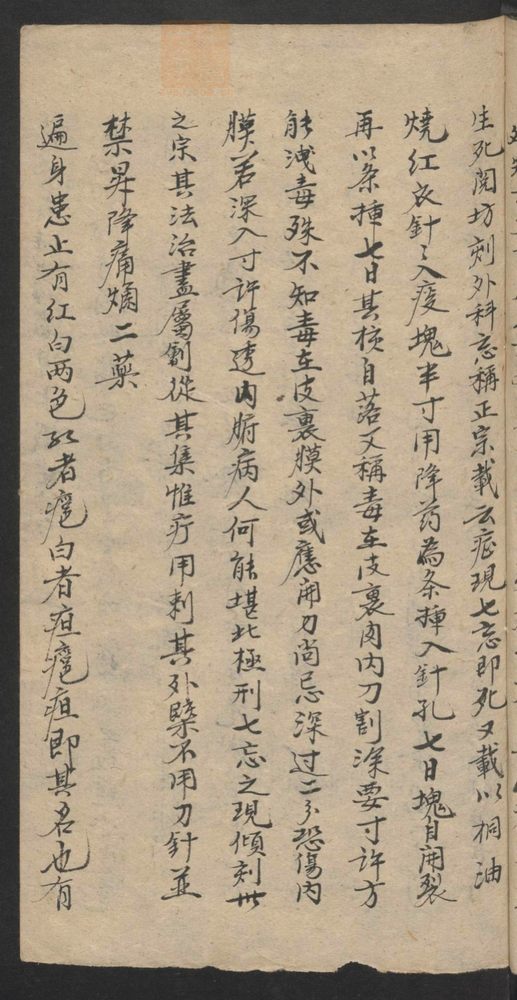 生死関坊刻外科忘稱正宗載云症現七忘即死又載以桐油
燒紅衣針々入疫塊半寸用降药為条揷入針孔七日塊自開裂
再以条揷七日其核自落又稱毒在皮裏肉内刀割深要寸許方
能洩毒殊不知毒在皮裏膜外或應開刀尚忌深过二分恐傷内
膜若深入寸許傷透内腑病人何能堪此極刑七忘之現傾刻世
之宗其法治盡屬劊從其集惟疔用刺其外槩不用刀針並
禁昇降痛爛二藥
遍身患止有紅白两色红者癰白者疽癰疽即其名也有